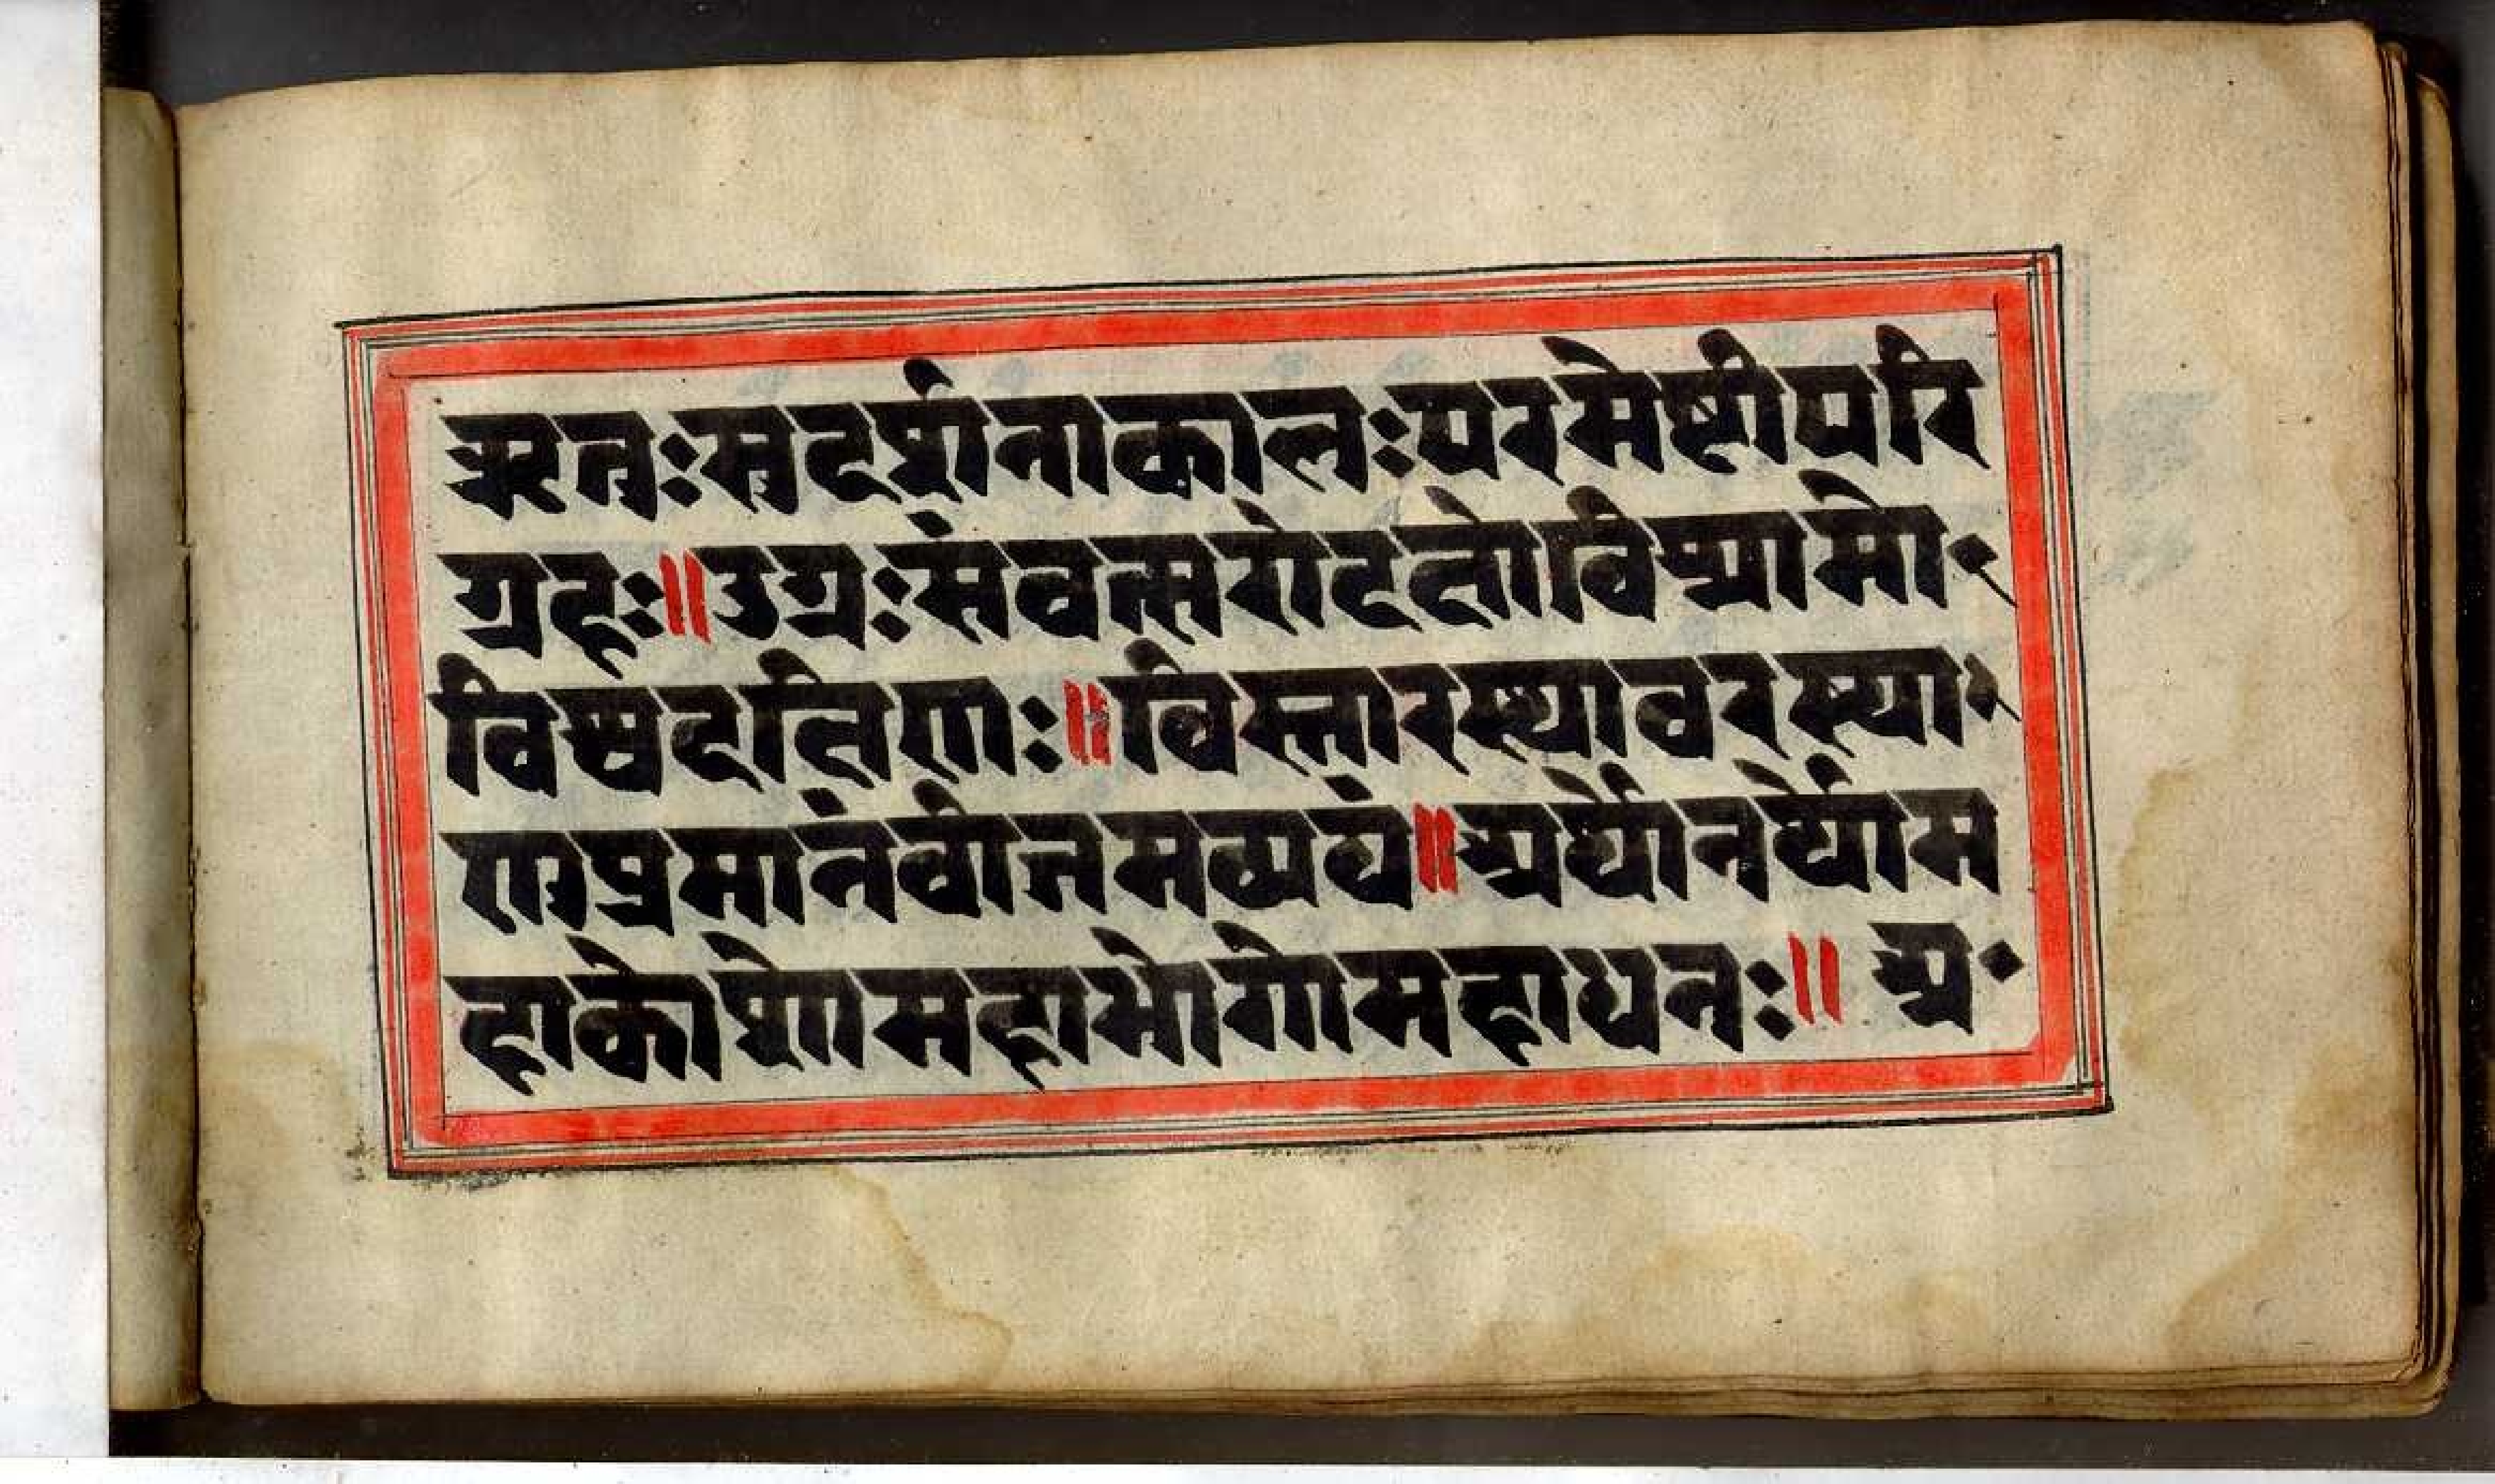 ऋतुःसुदर्शनाकालःपरमेष्टीपरि
ग्रहः॥उग्रःसंवत्सरोदक्षोविश्रामो
विश्वदक्षिणः॥विस्तारस्थावरस्था
णुप्रमानंवीजमव्ययं॥अर्थोनर्थोम
हाकोशोमहाभोगोमहाधनः॥ अ